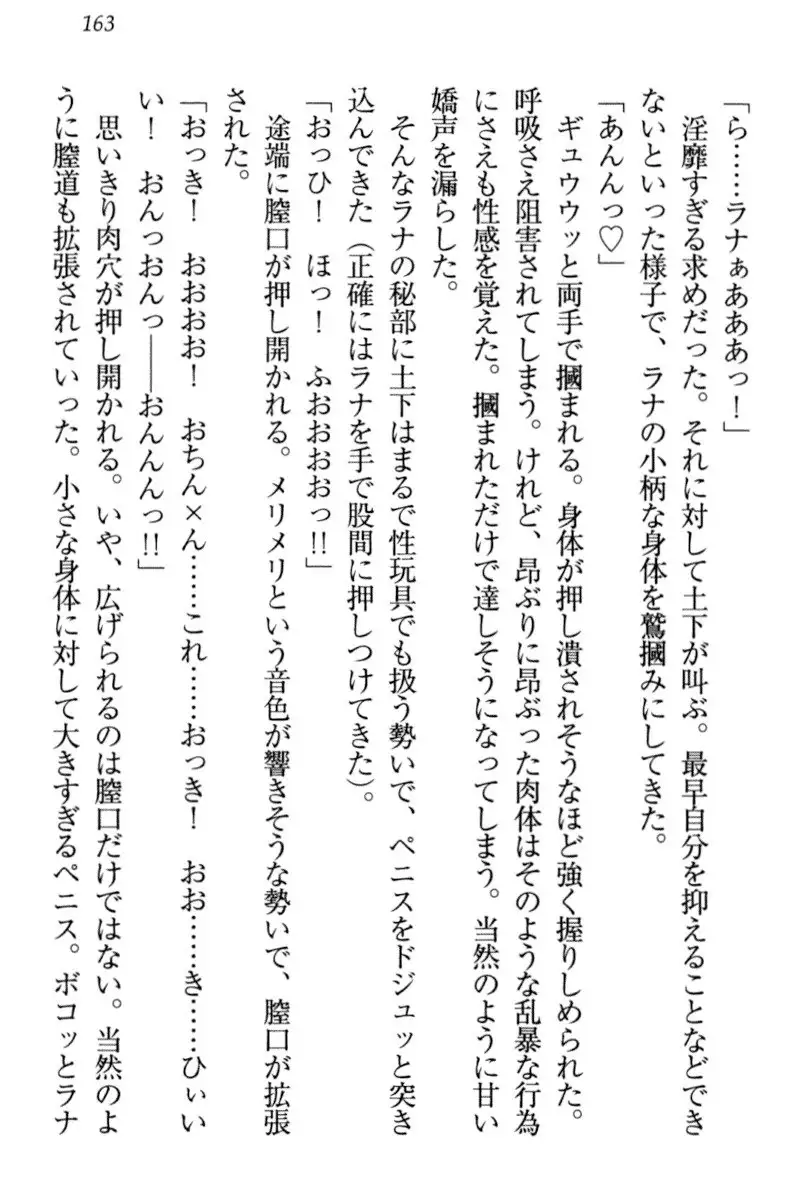 163
「ら……ラナぁあああっ！」
　淫靡すぎる求めだった。それに対して土下が叫ぶ。最早自分を抑えることなどでき
ないといった様子で、ラナの小柄な身体を鷲摑みにしてきた。
「あんんっ♡」
　ギュウウッと両手で摑まれる。身体が押し潰されそうなほど強く握りしめられた。
呼吸さえ阻害されてしまう。けれど、昂ぶりに昂ぶった肉体はそのような乱暴な行為
にさえも性感を覚えた。摑まれただけで達しそうになってしまう。当然のように甘い
嬌声を漏らした。
　そんなラナの秘部に土下はまるで性玩具でも扱う勢いで、ペニスをドジュッと突き
込んできた（正確にはラナを手で股間に押しつけてきた）。
「おっひ！　ほっ！　ふおおおおっ!!」
　途端に膣口が押し開かれる。メリメリという音色が響きそうな勢いで、膣口が拡張
された。
「おっき！　おおおお！　おちん×ん……これ……おっき！　おお……き……ひぃい
い！　おんっおんっ――おんんんっ!!」
　思いきり肉穴が押し開かれる。いや、広げられるのは膣口だけではない。当然のよ
うに膣道も拡張されていった。小さな身体に対して大きすぎるペニス。ボコッとラナ